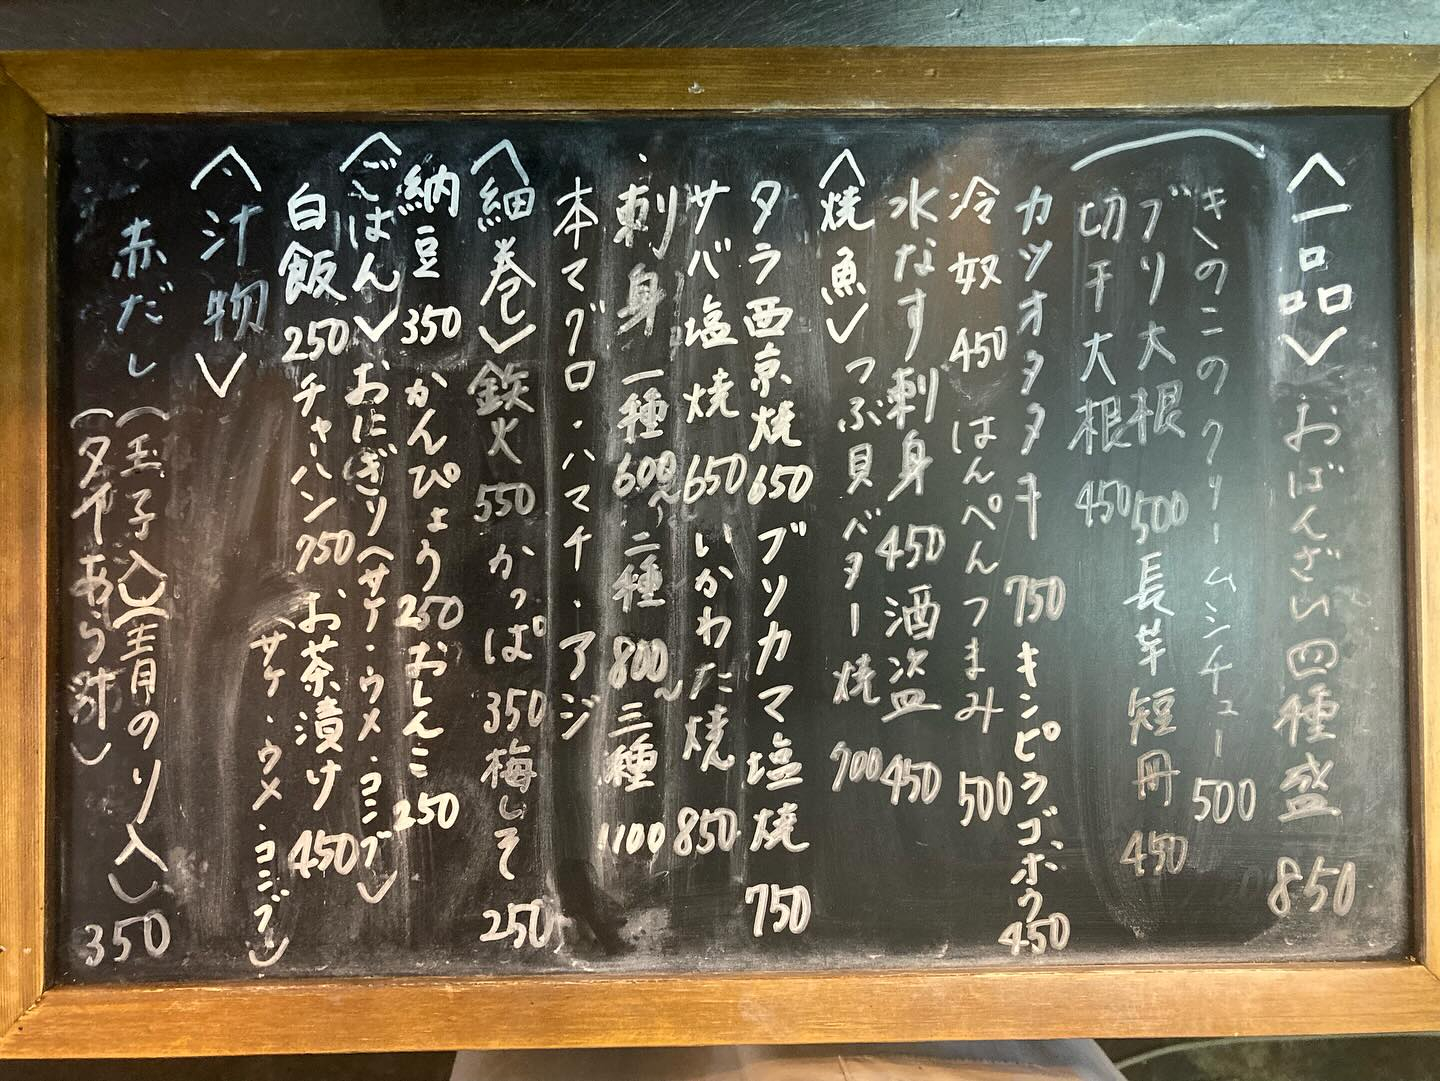 〈一品〉 おばんざい四種盛 850
きのこのクリームシチュー 500
ブリ大根 500 長芋短冊 450
切干大根 450
カツオタタキ 750 キンピラゴボウ 450
冷奴 450 はんぺんつまみ 500
水なす刺身 450 酒盗 450
〈焼魚〉 つぶ貝バター焼 700
タラ西京焼 650 ブリカマ塩焼 750
サバ塩焼 650 いかわた焼 850
・刺身 一種 600〜 二種 800〜 三種 1100
本マグロ・ハマチ・アジ
〈細巻〉 鉄火 550 かっぱ 350 梅しそ 250
納豆 350 かんぴょう 250 おしんこ 250
〈ごはん〉 おにぎり(サケ・ウメ・コンブ)
白飯 250 チャーハン 750 お茶漬け 450
(サケ・ウメ・コンブ)
〈汁物〉
赤だし (玉子入)(青のり入) 350
(タイあら汁)